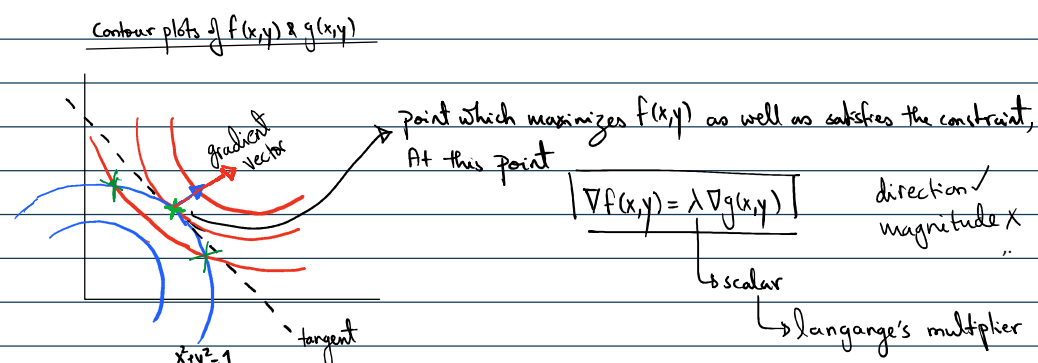 Contour plots of f(x,y) & g(x,y)
point which maximizes f(x,y) as well as satisfies the constraint,
At this point
gradient
vector
∇f(x,y) = λ ∇g(x,y)
direction ✓
magnitude X
scalar
langange's multiplier
tangent
x²+y²-1